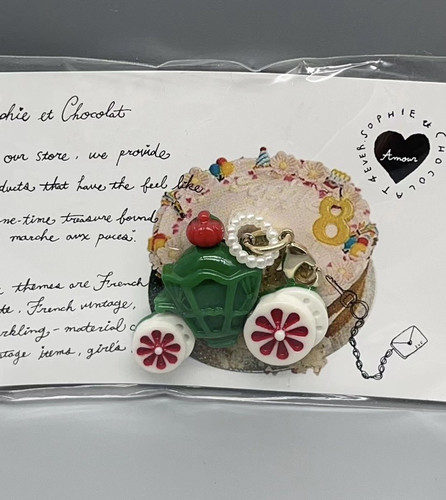 phie et Chocolat
our store, we provide
ducts that have the feel like
ne-time treasure found
marche aux puces.
themes are French
te, French vintage,
rkling-material
tage items, girls
4EVER SOPHIE et CHOCOLAT
Amour
8